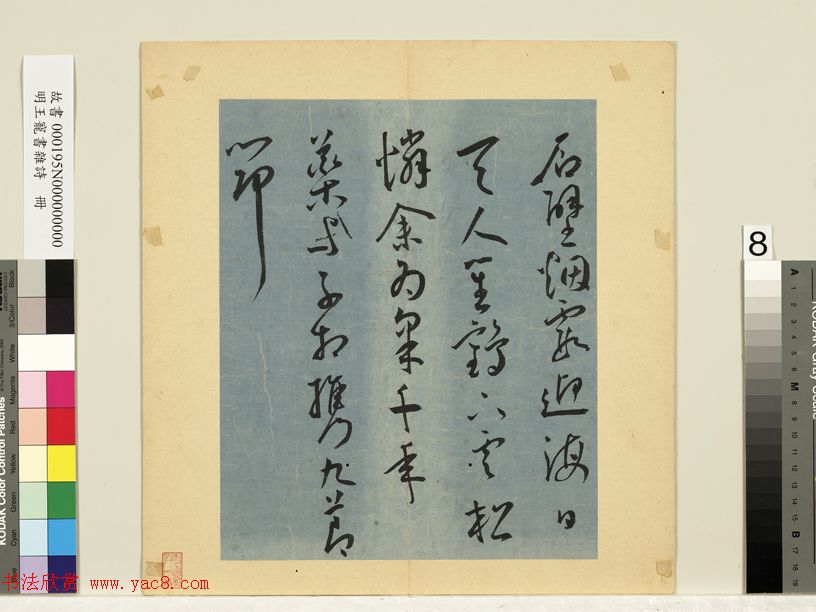 石壁烟霞迎海日
天人笙鶴下雲松
憐余為采千年
藥與子相攜九節
筇
故書 000195N000000000
明王寵書雜詩 冊
8
KODAK Color Control Patches
Blue
Cyan
Green
Yellow
Red
Magenta
White
3/Color
Black
A 1 2 3 4 5 6 M 8 9 10 11 12 13 14 15 B 17 18 19
书法欣赏 www.yac8.com